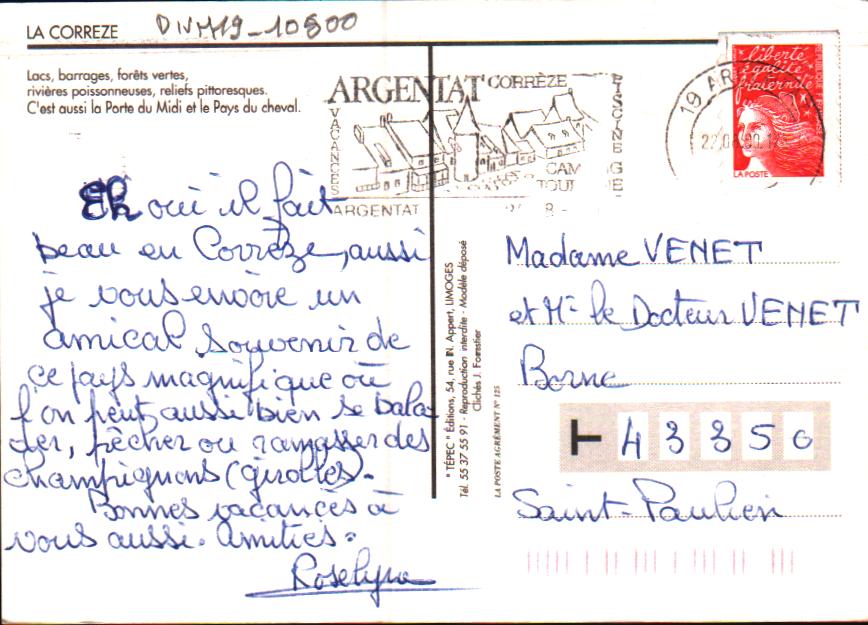 LA CORREZE
DIVM19-10800
Lacs, barrages, forêts vertes,
rivières poissonneuses, reliefs pittoresques.
C'est aussi la Porte du Midi et le Pays du cheval.
Eh oui il fait
beau en Corrèze, aussi
je vous envoie un
amical souvenir de
ce pays magnifique où
l'on peut aussi bien se bala-
der, pêcher ou ramasser des
champignons (girolles).
Bonnes vacances à
vous aussi. Amitiés.
Roselyne
"TÉPEC" Éditions, 54, rue IN. Appert, LIMOGES
Tél. 55 37 55 91 - Reproduction interdite - Modèle déposé
Clichés J. Forestier
LA POSTE AGRÉMENT N° 125
ARGENTAT CORRÈZE
VACANCES
PISCINE
CAM G
TOUT
ARGENTAT
19 AR
liberté
égalité
fraternité
RÉPUBLIQUE
LA POSTE
Madame VENET
et Mr le Docteur VENET
Borne
43350
Saint-Paulien